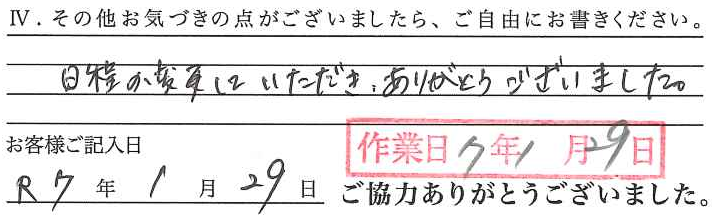 Ⅳ．その他お気づきの点がございましたら、ご自由にお書きください。
日程の変更していただき、ありがとうございました。
お客様ご記入日
作業日 7年 1月29日
R7年1月29日 ご協力ありがとうございました。